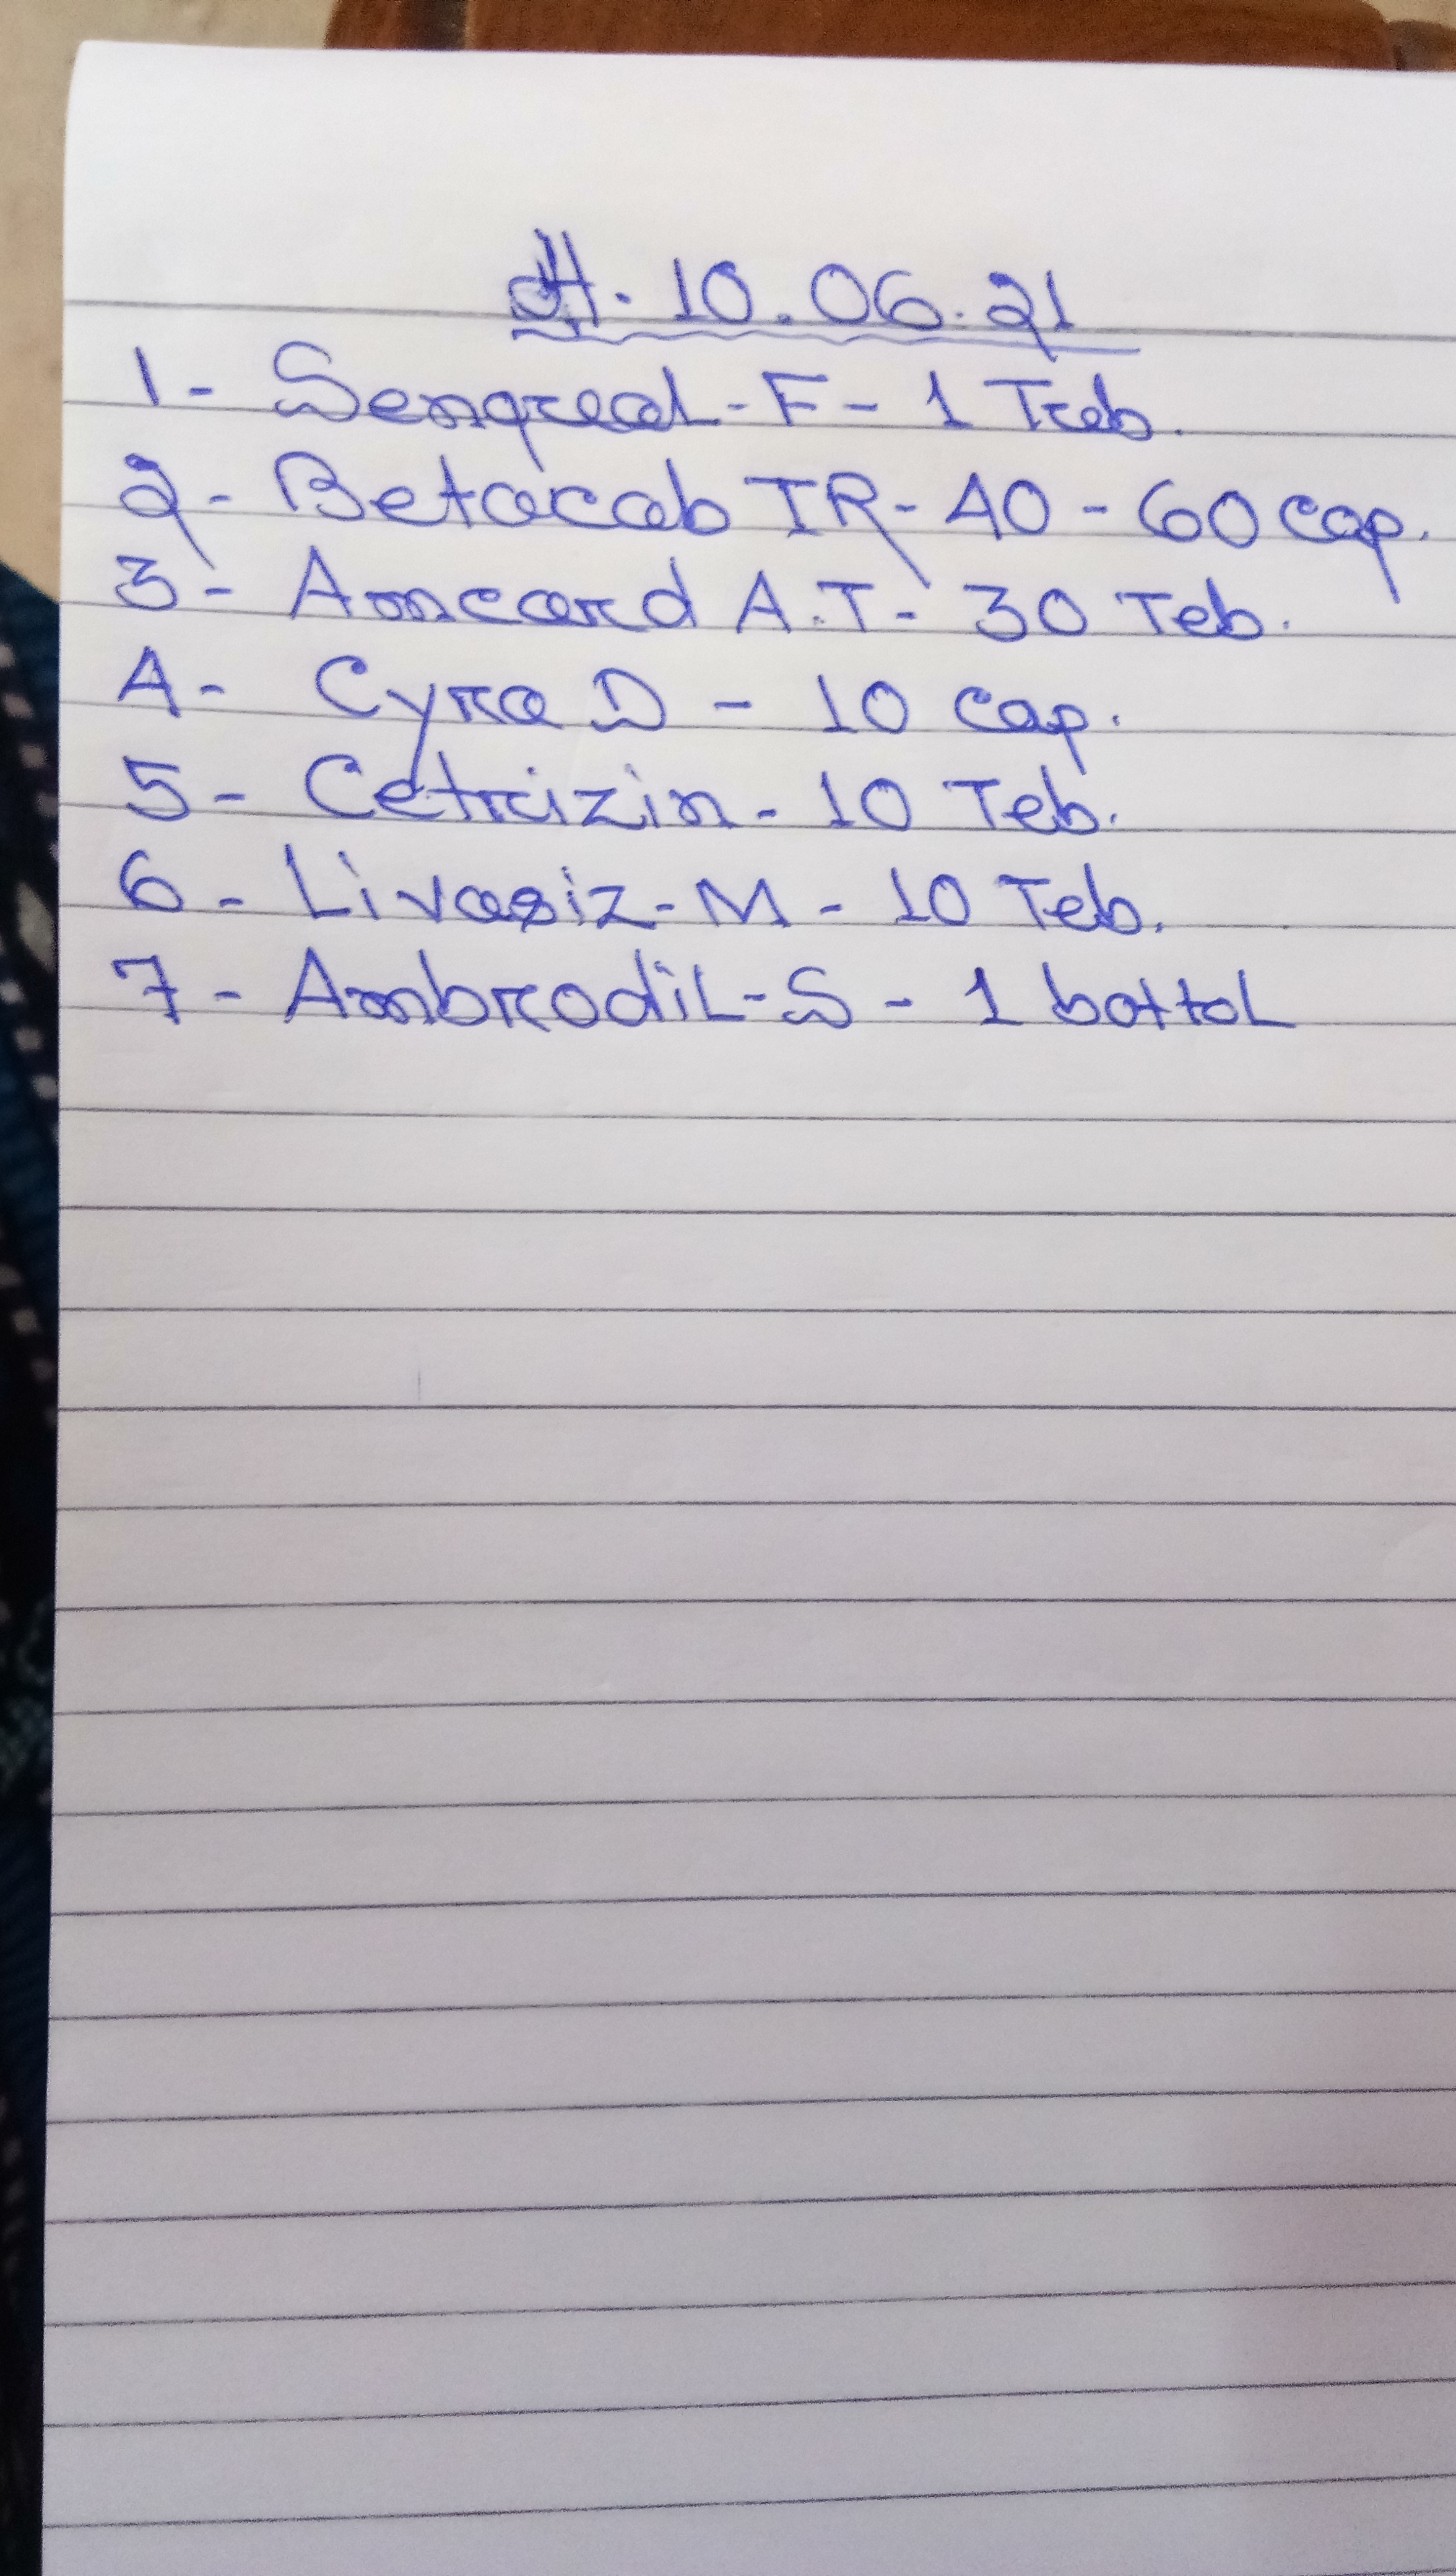 dt. 10.06.21
1- Senqreal-F- 1 Treb.
2- Betacab TR- 40 - 60 cap.
3- Amcard A.T- 30 Teb.
4- Cyra D - 10 cap.
5- Cetrizin - 10 Teb.
6- Livasiz-M - 10 Teb.
7- Ambrodil-S - 1 bottol